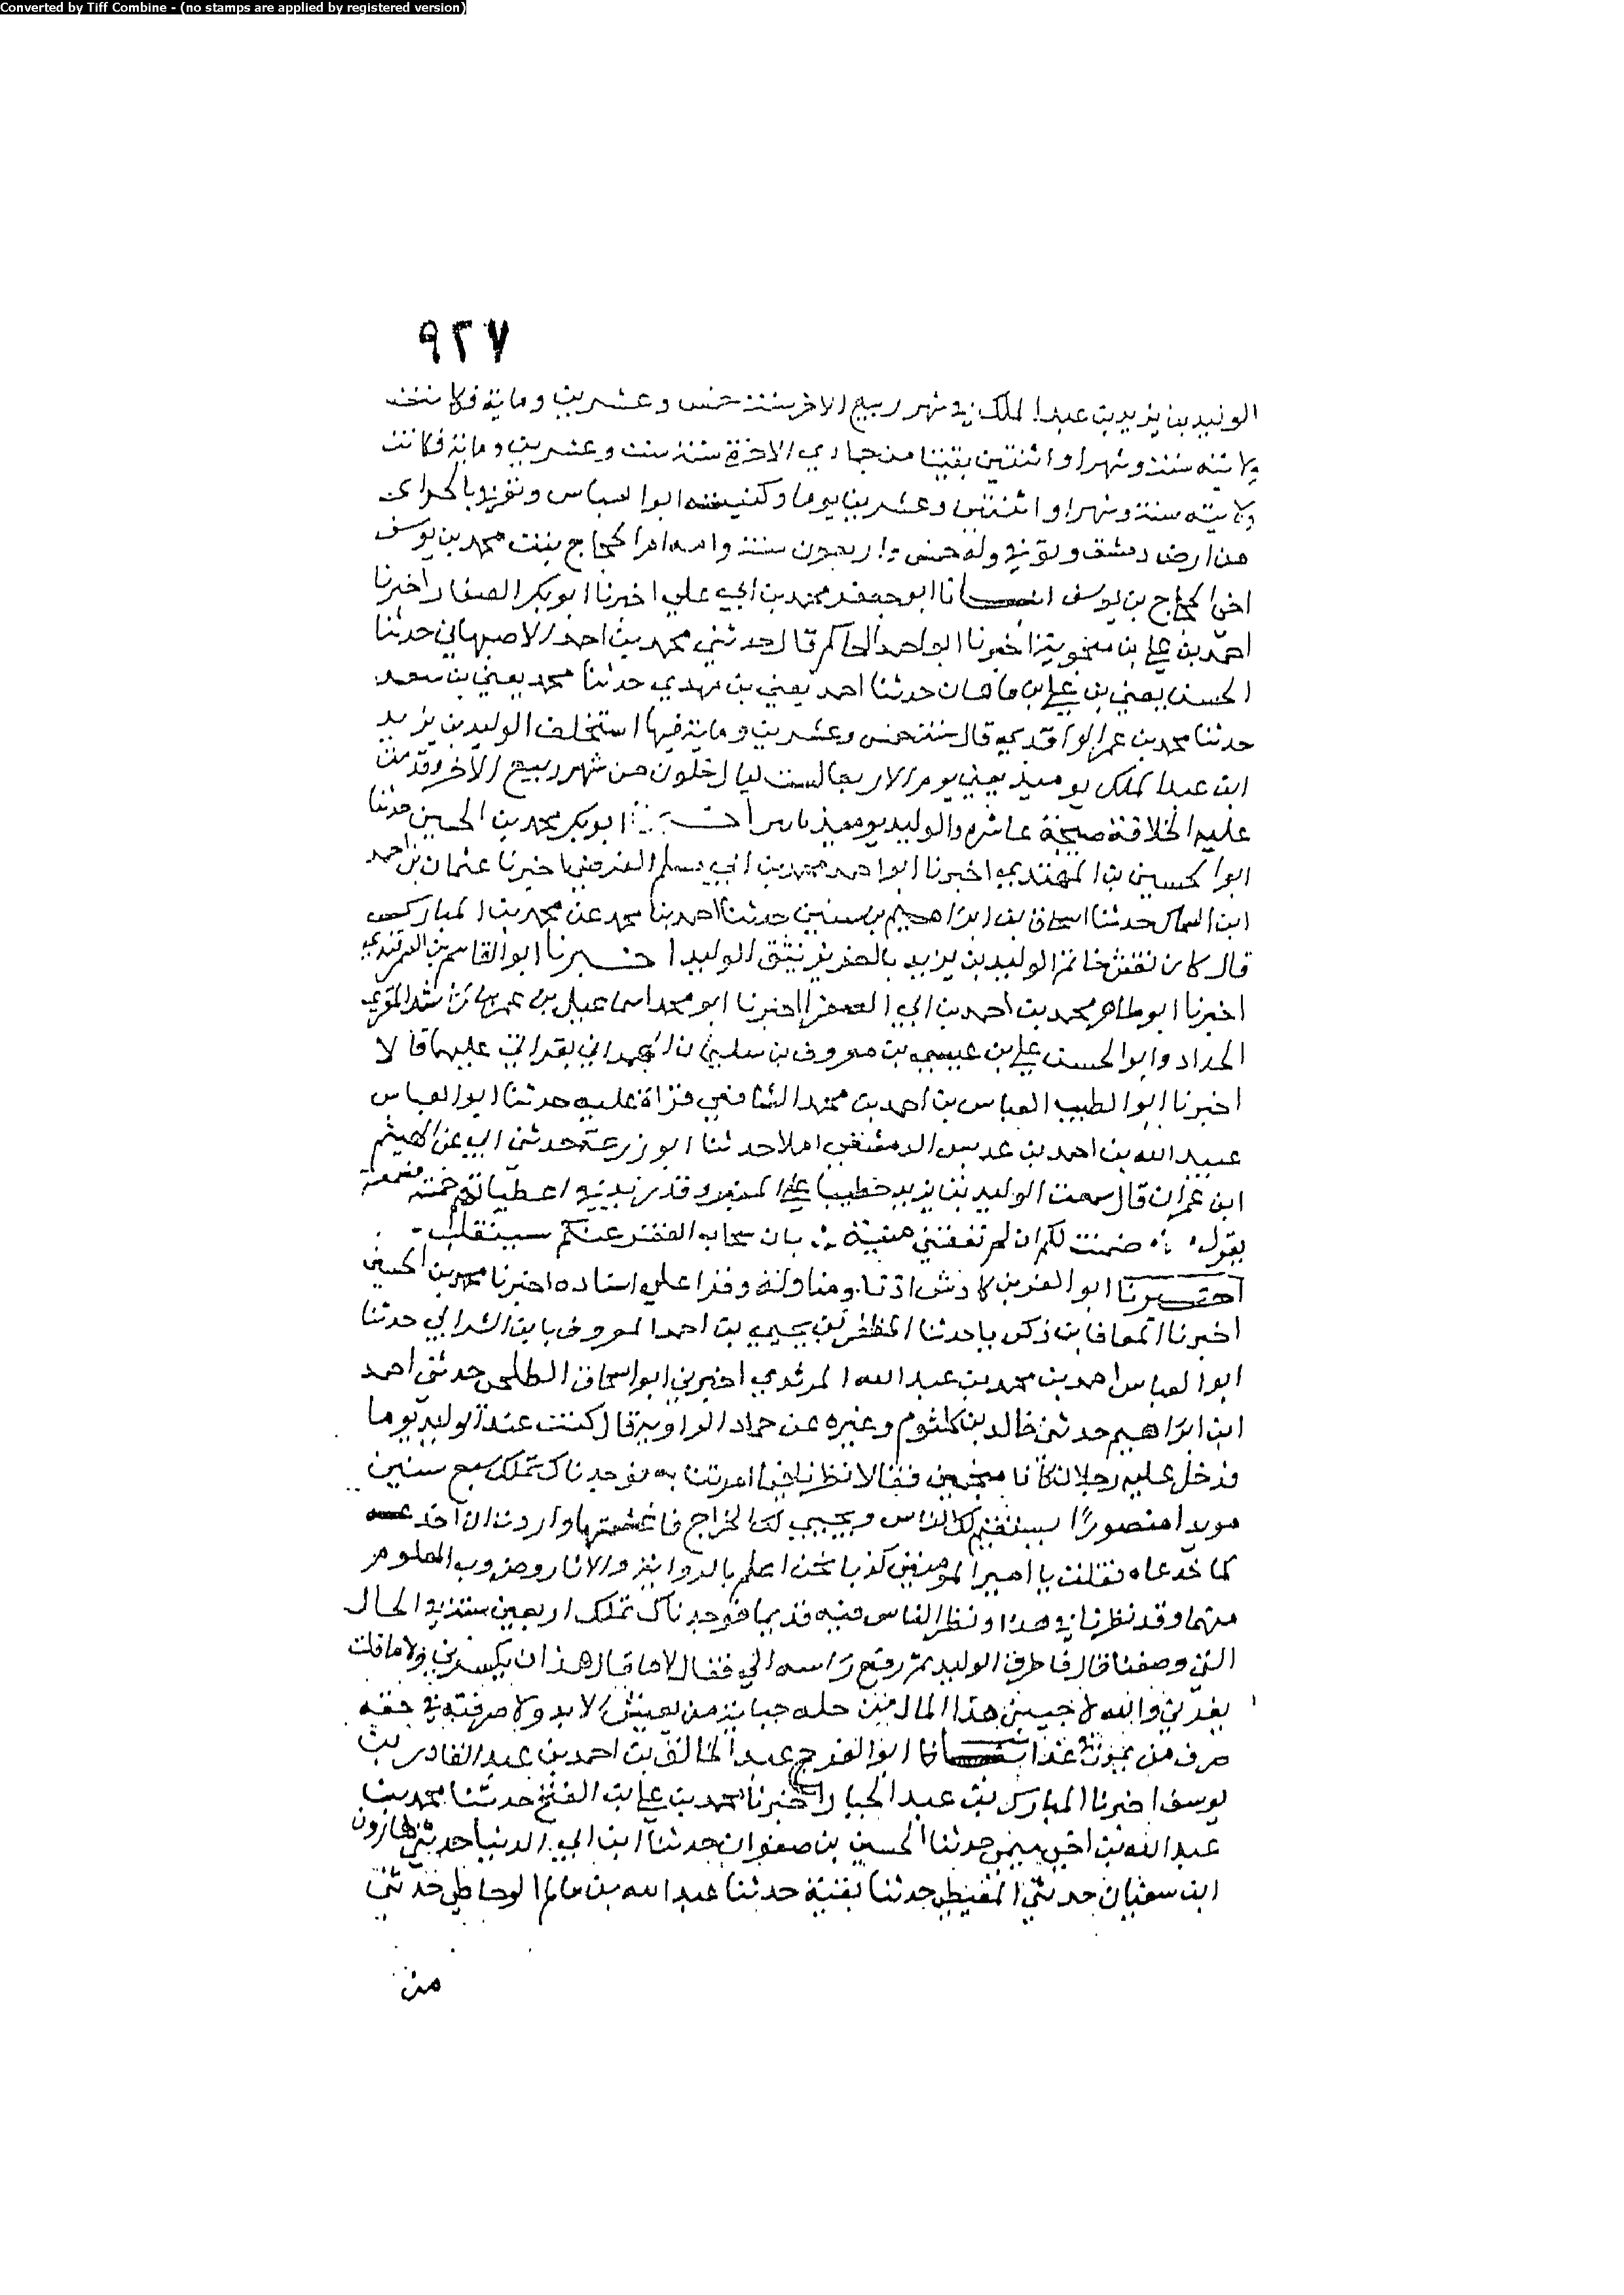 Converted by Tiff Combine - (no stamps are applied by registered version)
٩٢٧
الوليد بن يزيد بن عبد الملك في شهر ربيع الاخر سنة خمس وعشرين وماية فكانت
ولايته سنة وشهرا واثنتين بقيتا من جمادي الاخرة سنة ست وعشرين وماية فكانت
ولايته سنة وشهرا واثنتين وعشرين يوما وكنيته ابوا العباس وتوفي بالحرا
من ارض دمشق وتوفي وله خمس واربعون سنة وامه ام الحجاج بنت محمد بن يوسف
اخي الحجاج بن يوسف انبانا ابو جعفر محمد بن ابي علي اخبرنا ابو بكر الصفار اخبرنا
احمد بن علي بن منجويه اخبرنا ابو احمد الحاكم قال حدثني محمد بن احمد الاصبهاني حدثنا
الحسن يعني بن علي بن ماهان حدثنا احمد يعني بن مهدي حدثنا محمد يعني بن سعد
حدثنا محمد بن عمر الواقدي قال سنة خمس وعشرين وماية فيها استخلف الوليد بن يزيد
ابن عبد الملك يوميذ يعني يوم الاربعا لست ليال خلون من شهر ربيع الاخر وقدمت
عليه الخلافة صبيحة عاشره والوليد يوميذ ابو بكر محمد بن الحسين حدثنا
ابوا الحسين بن المهتدي اخبرنا ابوا احمد محمد بن ابي مسلم الفرضي اخبرنا عثمان بن احمد
ابن السماك حدثنا اسحاق بن ابراهيم بن سنين حدثنا احمد بن محمد عن محمد بن المبارك
قال كان نقش خاتم الوليد بن يزيد بالعزيز يثق الوليد اخبرنا ابو القاسم بن السمرقندي
اخبرنا ابو طاهر محمد بن احمد بن ابي الصقر اخبرنا ابو محمد اسماعيل بن عمر بن راشد المقري
الحداد وابو الحسن علي بن عيسي بن معروف بن سليمان الهمداني بقراتي عليهما قالا
اخبرنا ابو الطيب العباس بن احمد بن محمد الشافعي قراة عليه حدثنا ابو العباس
عبيد الله بن احمد بن عدبس الدمشقي املا حدثنا ابو زرعة حدثني ابي عن الهيثم
ابن عمران قال سمعت الوليد بن يزيد خطيبا علي المنبر وقد اعطياتهم
يقول ضمنت لكم ان لم تعقني منية بان سحاب الفقر عنكم سينقلب
اخبرنا ابو العز بن كادش اذنا ومناولة وقرا علي اسناده اخبرنا محمد بن الحسين
اخبرنا المعافا بن زكريا حدثنا المظفر بن يحيي بن احمد المعروف بابن الشرابي حدثنا
ابوا العباس احمد بن محمد بن عبد الله المرثدي اخبرني ابو اسحاق الطلحي حدثني احمد
ابن ابراهيم حدثني خالد بن كلثوم وغيره عن حماد الراوية قال كنت عند الوليد يوما
فدخل عليه رجلان كانا منجمين فقالا نظرنا فيما امرتنا به فوجدناك تملك سبع سنين
مويدا منصورا يستقيم لك الناس ويجبي لك الخراج فاغتنمتها واردت ان اخدعه
كما خدعاه فقلت يا امير المومنين كذبا نحن اعلم بالرواية والاثار وضروب العلوم
منهما وقد نظرنا في هذا ونظر الناس فيه قديما فوجدناك تملك اربعين سنة في الحال
التي وصفنا قال فاطرق الوليد ثم رفع راسه الي فقال لا ما قال هذان يكسرني ولا ما قلت
يغرني والله لاجبين هذا المال من حله جباية من يعيش الابد ولاصرفنه في حقه
صرف من يموت غدا انبانا ابو الفرج عبد الخالق بن احمد بن عبد القادر بن
يوسف اخبرنا المبارك بن عبد الجبار اخبرنا محمد بن علي بن الفتح حدثنا محمد بن
عبد الله بن اخي ميمي حدثنا الحسين بن صفوان حدثنا ابن ابي الدنيا حدثني هارون
ابن سفيان حدثني حدثنا بقية حدثنا عبد الله بن سالم الوحاظي حدثني
من